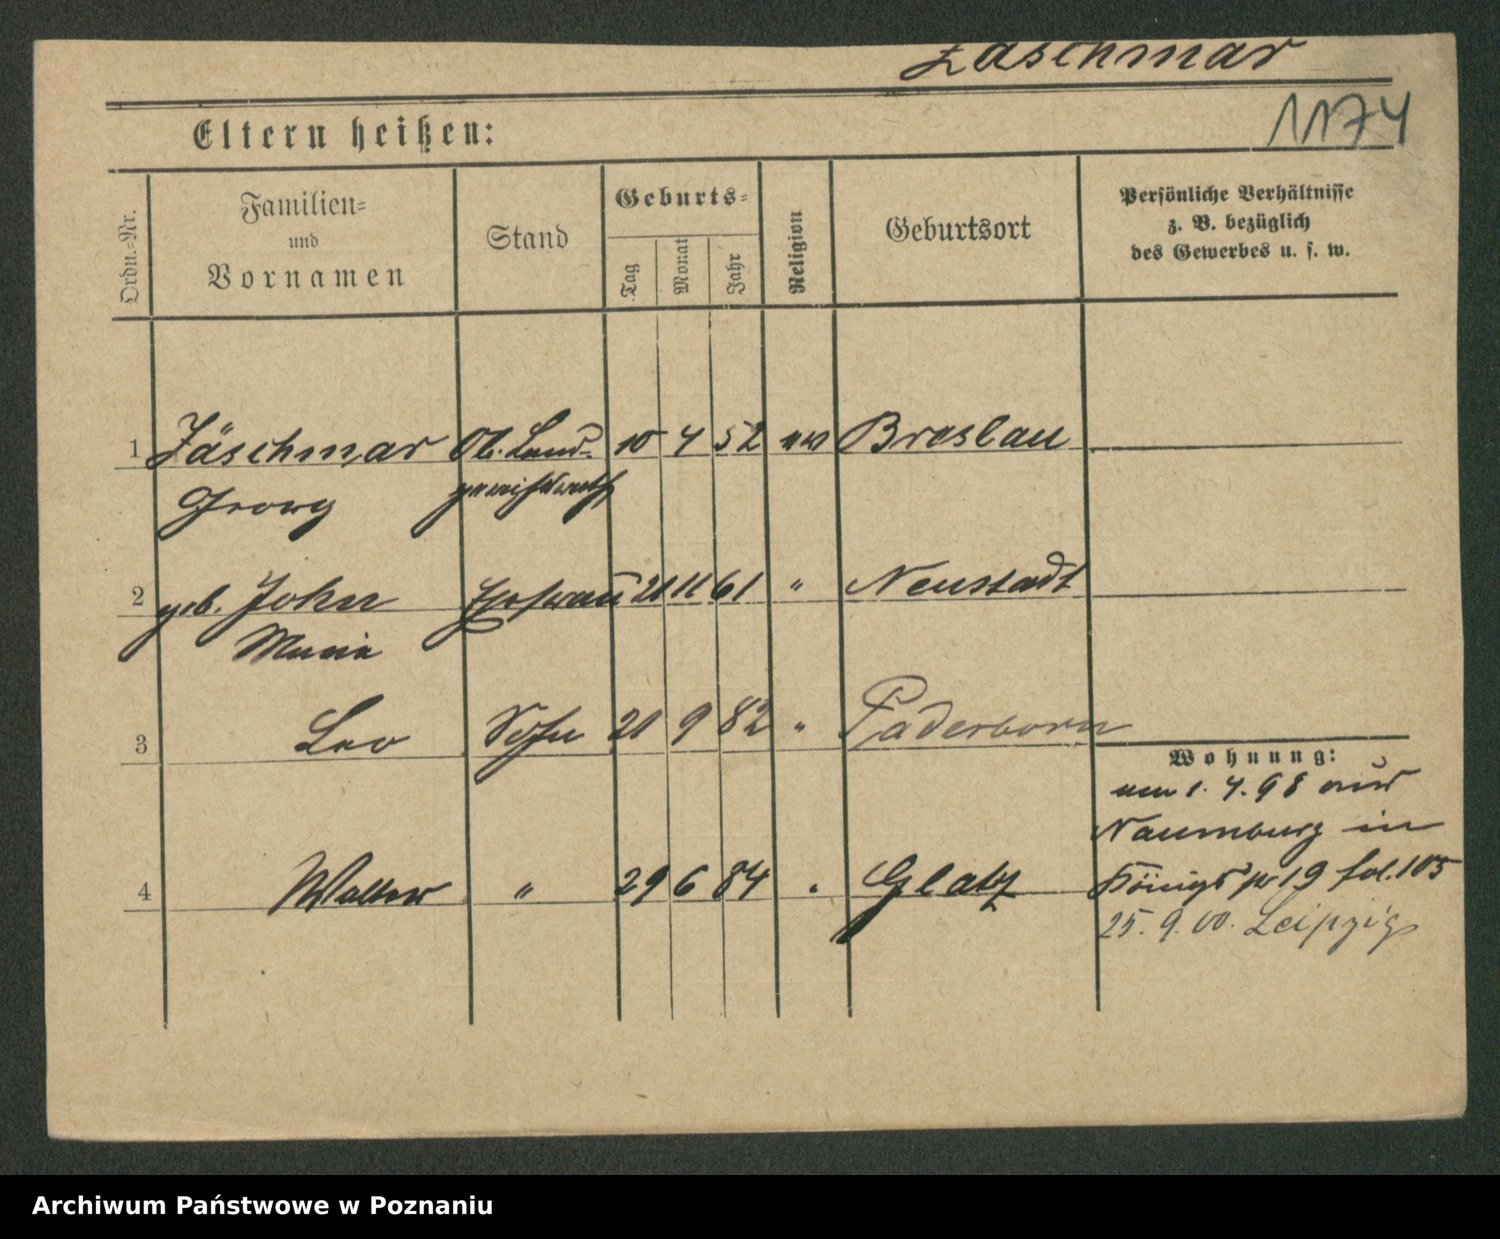 Zäschmar
1174
Eltern heißen:
Ordn.-Nr.
Familien-
und
Vornamen
Stand
Geburts-
Tag
Monat
Jahr
Religion
Geburtsort
Persönliche Verhältnisse
z. B. bezüglich
des Gewerbes u. s. w.
1 Zäschmar Ob. Land- 10 4 52 ev Breslau
Georg gerichtsrath
2 geb. John Ehefrau 21 11 61 " Neustadt
Marie
3 Leo Sohn 21 9 82 " Paderborn
Wohnung:
am 1. 4. 98 aus
Naumburg in
4 Walter " 29 6 84 " Glatz
Königspl 19 fol. 105
25. 9. 00. Leipzig
Archiwum Państwowe w Poznaniu